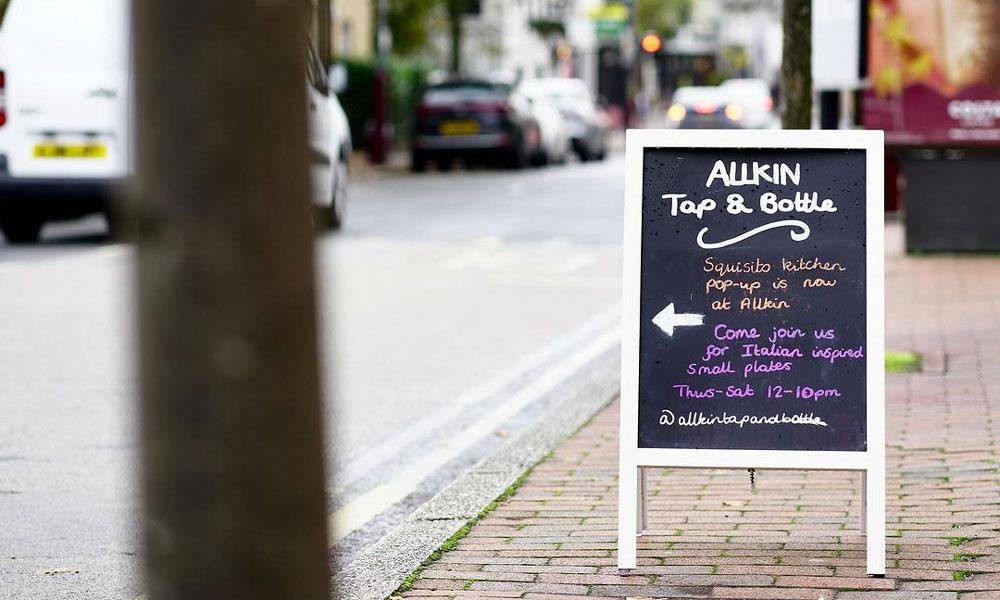 ALLKIN
Tap & Bottle
Squisito kitchen
pop-up is now
at Allkin
Come join us
for Italian inspired
small plates
Thurs-Sat 12-10pm
@allkintapandbottle